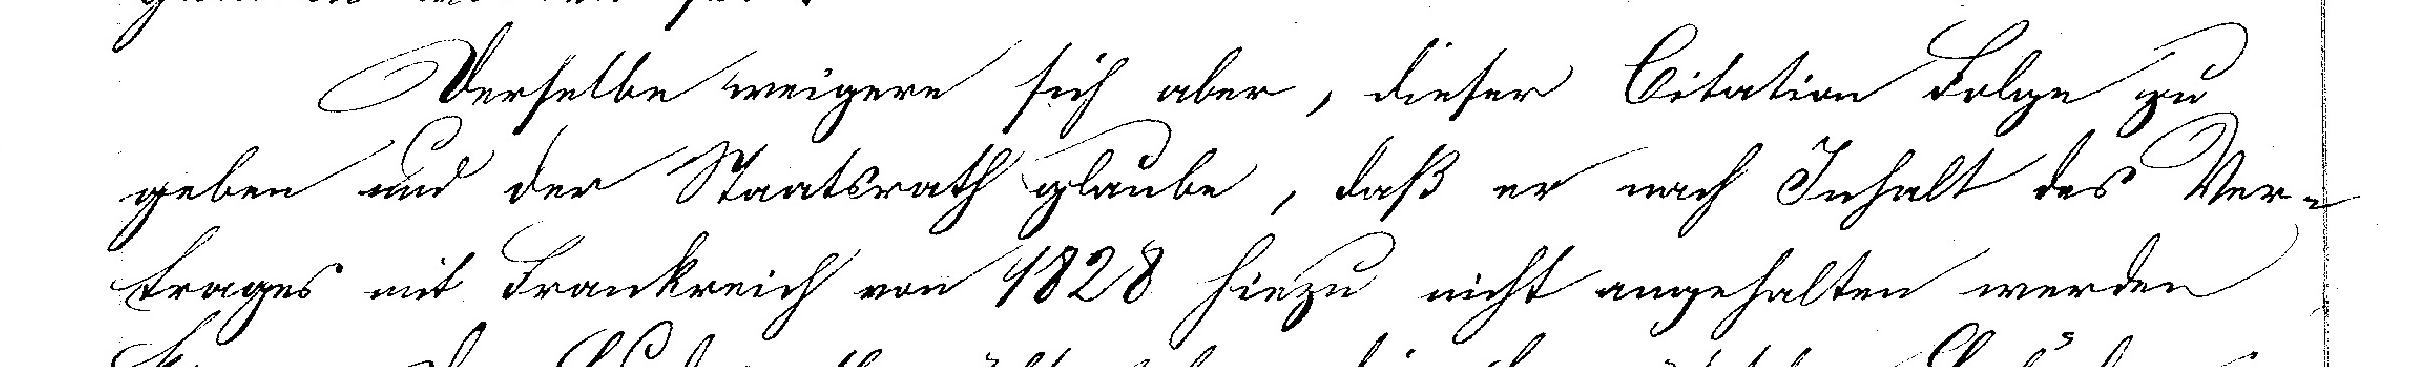 Derselbe weigere sich aber, dieser Citation Folge zu
geben und der Staatsrath glaube, daß er nach Inhalt des Ver-
trages mit Frankreich von 1828 hiezu nicht angehalten werden